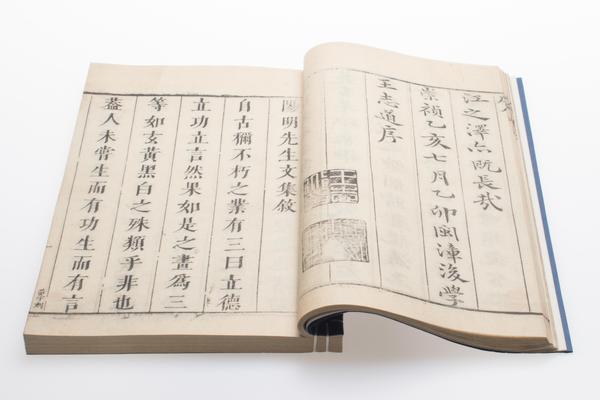 江之澤亦既長哉
崇禎乙亥七月乙卯閩漳後學
王志道序
陽明先生文集敘
自古穪不朽之業有三曰立德
立功立言然果如是之畫爲三
等如玄黃黑白之殊類乎非也
葢人未嘗生而有功生而有言